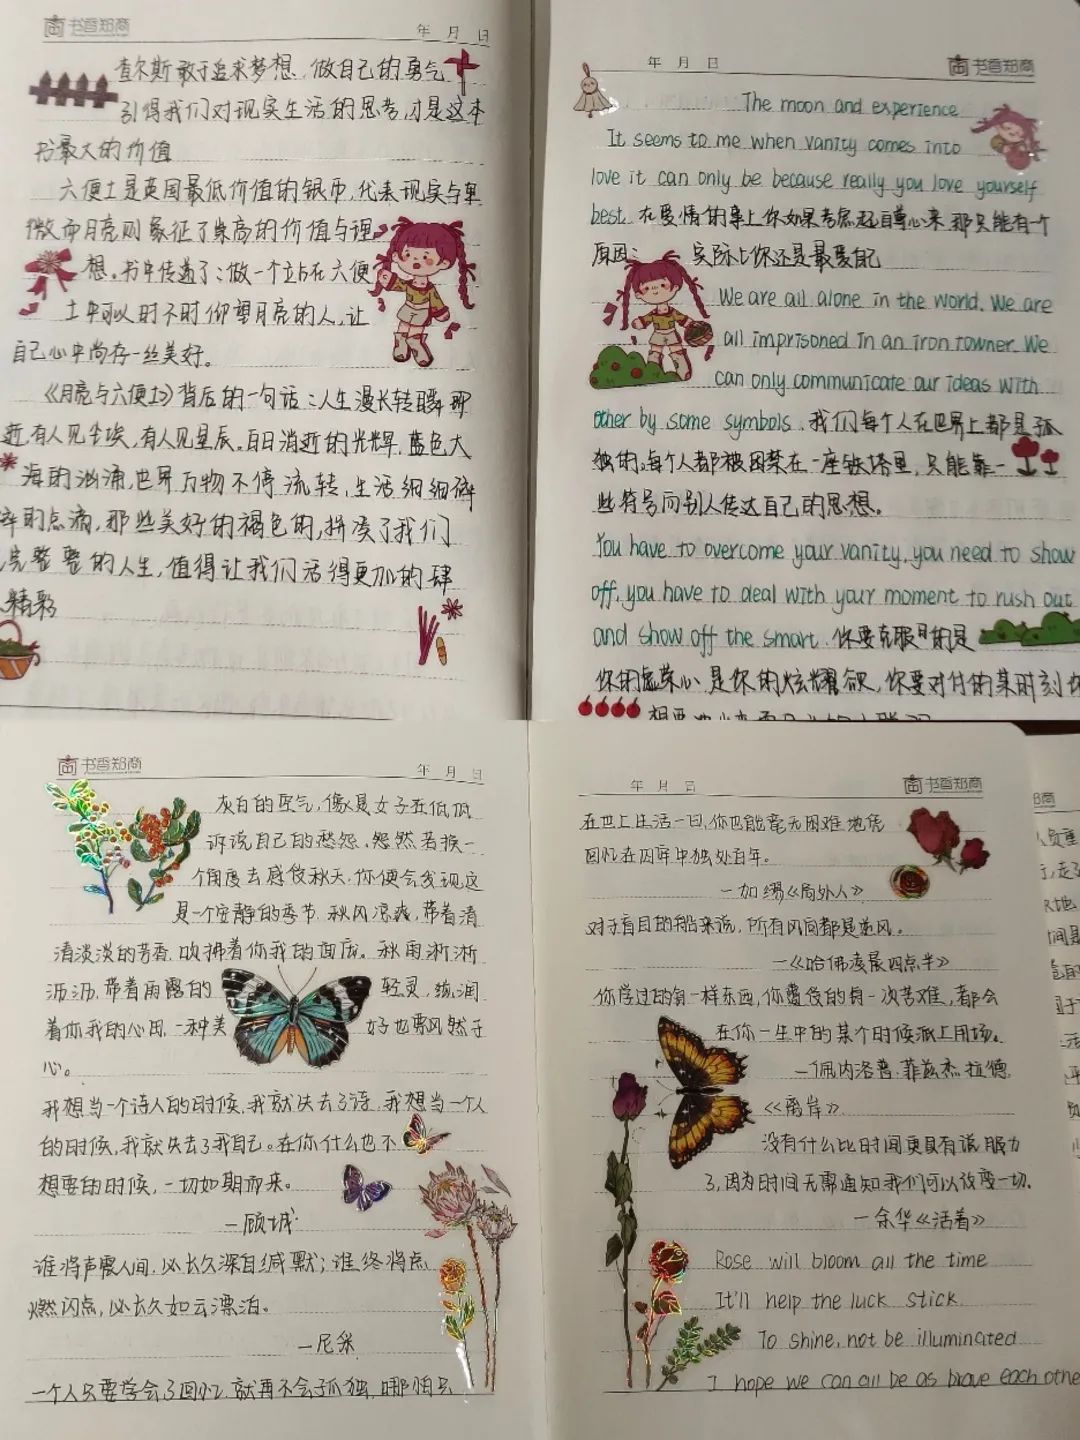 书香知商
年 月 日
查尔斯敢于追求梦想、做自己的勇气
引得我们对现实生活的思考,才是这本
书最大的价值
六便士是英国最低价值的银币,代表现实与卑
微而月亮则象征了崇高的价值与理
想。书中传递了:做一个站在六便
士中可以时不时仰望月亮的人,让
自己心中尚存一丝美好。
《月亮与六便士》背后的一句话:人生漫长转瞬即
逝,有人见尘埃,有人见星辰,白日消逝的光辉,蓝色大
海的汹涌,世界万物不停流转,生活细细碎
碎的点滴,那些美好的褐色的,拼凑了我们
完整整的人生,值得让我们活得更加的肆
精彩
年 月 日
书香知商
The moon and experience
It seems to me when vanity comes into
love it can only be because really you love yourself
best. 在爱情的事上你如果考虑起自尊心来,那只能有一个
原因: 实际上你还是最爱自己
We are all alone in the world. We are
all imprisoned in an iron towner. We
can only communicate our ideas with
other by some symbols. 我们每个人在世界上都是孤
独的,每个人都被囚禁在一座铁塔里,只能靠一
些符号向别人传达自己的思想。
You have to overcome your vanity, you need to show
off, you have to deal with your moment to rush out
and show off the smart. 你要克服的是
你的虚荣心,是你的炫耀欲,你要对付的某时刻
想要
书香知商
年 月 日
灰白的空气,像是女子在低低
诉说自己的愁怨,怨然若换一
个角度去感受秋天,你便会发现这
是一个安静的季节,秋风凉爽,带着清
清淡淡的芳香,吹拂着你我的面庞。秋雨淅淅
沥沥,带着雨露的 轻灵,滋润
着你我的心田,一种美 好也飘然于
心。
我想当一个诗人的时候,我就失去了诗,我想当一个人
的时候,我就失去了我自己。在你什么也不
想要的时候,一切如期而来。
—顾城
谁将声震人间,必长久深自缄默;谁终将点
燃闪点,必长久如云漂泊。
—尼采
一个人只要学会了回忆,就再不会孤独,哪怕只
年 月 日
书香知商
在世上生活一日,你也能毫无困难地凭
回忆在囚牢中独处百年。
—加缪《局外人》
对于盲目的船来说,所有风向都是逆风。
—《哈佛凌晨四点半》
你学过的每一样东西,你遭受的每一次苦难,都会
在你一生中的某个时候派上用场。
—佩内洛普·菲兹杰拉德
《离岸》
没有什么比时间更具有说服力
了,因为时间无需通知我们可以改变一切.
—余华《活着》
Rose will bloom all the time
It'll help the luck stick.
To shine, not be illuminated
I hope we can all be as brave each othe